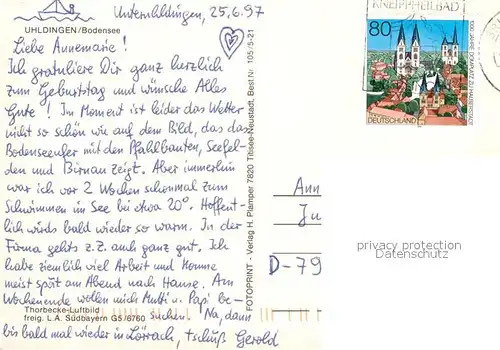 Unteruhldingen, 25.6.97
UHLDINGEN/Bodensee
Liebe Annemarie!
Ich gratuliere Dir ganz herzlich
zum Geburtstag und wünsche Alles
Gute! Im Moment ist leider das Wetter
nicht so schön wie auf dem Bild, das das
Bodenseeufer mit den Pfahlbauten, Seefel-
den und Birnau zeigt. Aber immerhin
war ich vor 2 Wochen schonmal zum
Schwimmen im See bei etwa 20°. Hoffent-
lich wirds bald wieder so warm. In der
Firma gehts z.Z. auch ganz gut. Ich
habe ziemlich viel Arbeit und komme
meist spät am Abend nach Hause. Am
Wochenende wollen mich Mutti u. Papi be-
Thorbecke-Luftbild
freig. L.A. Südbayern G5/6760
suchen. Na, dann
bis bald mal wieder in Lörrach, tschüß Gerold
FOTOPRINT - Verlag H. Plamper 7820 Titisee-Neustadt, Best.Nr. 1055/5-21
KNEIPPHEILBAD
80
DEUTSCHLAND
Ann
Ju
D-79
privacy protection
Datenschutz